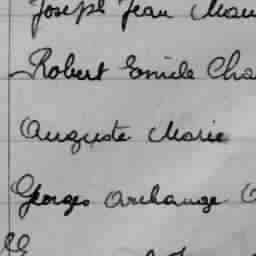 Joseph Jean Mau
Robert Emile Cha
Auguste Marie
Georges Archange